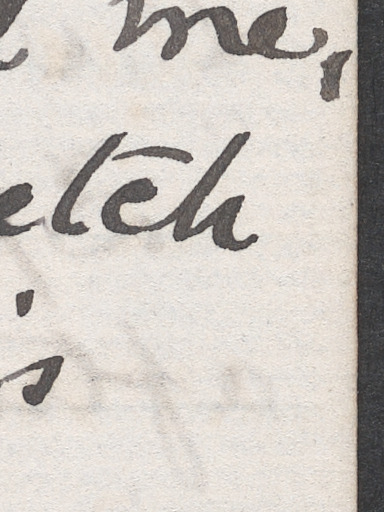 me,
etch
is